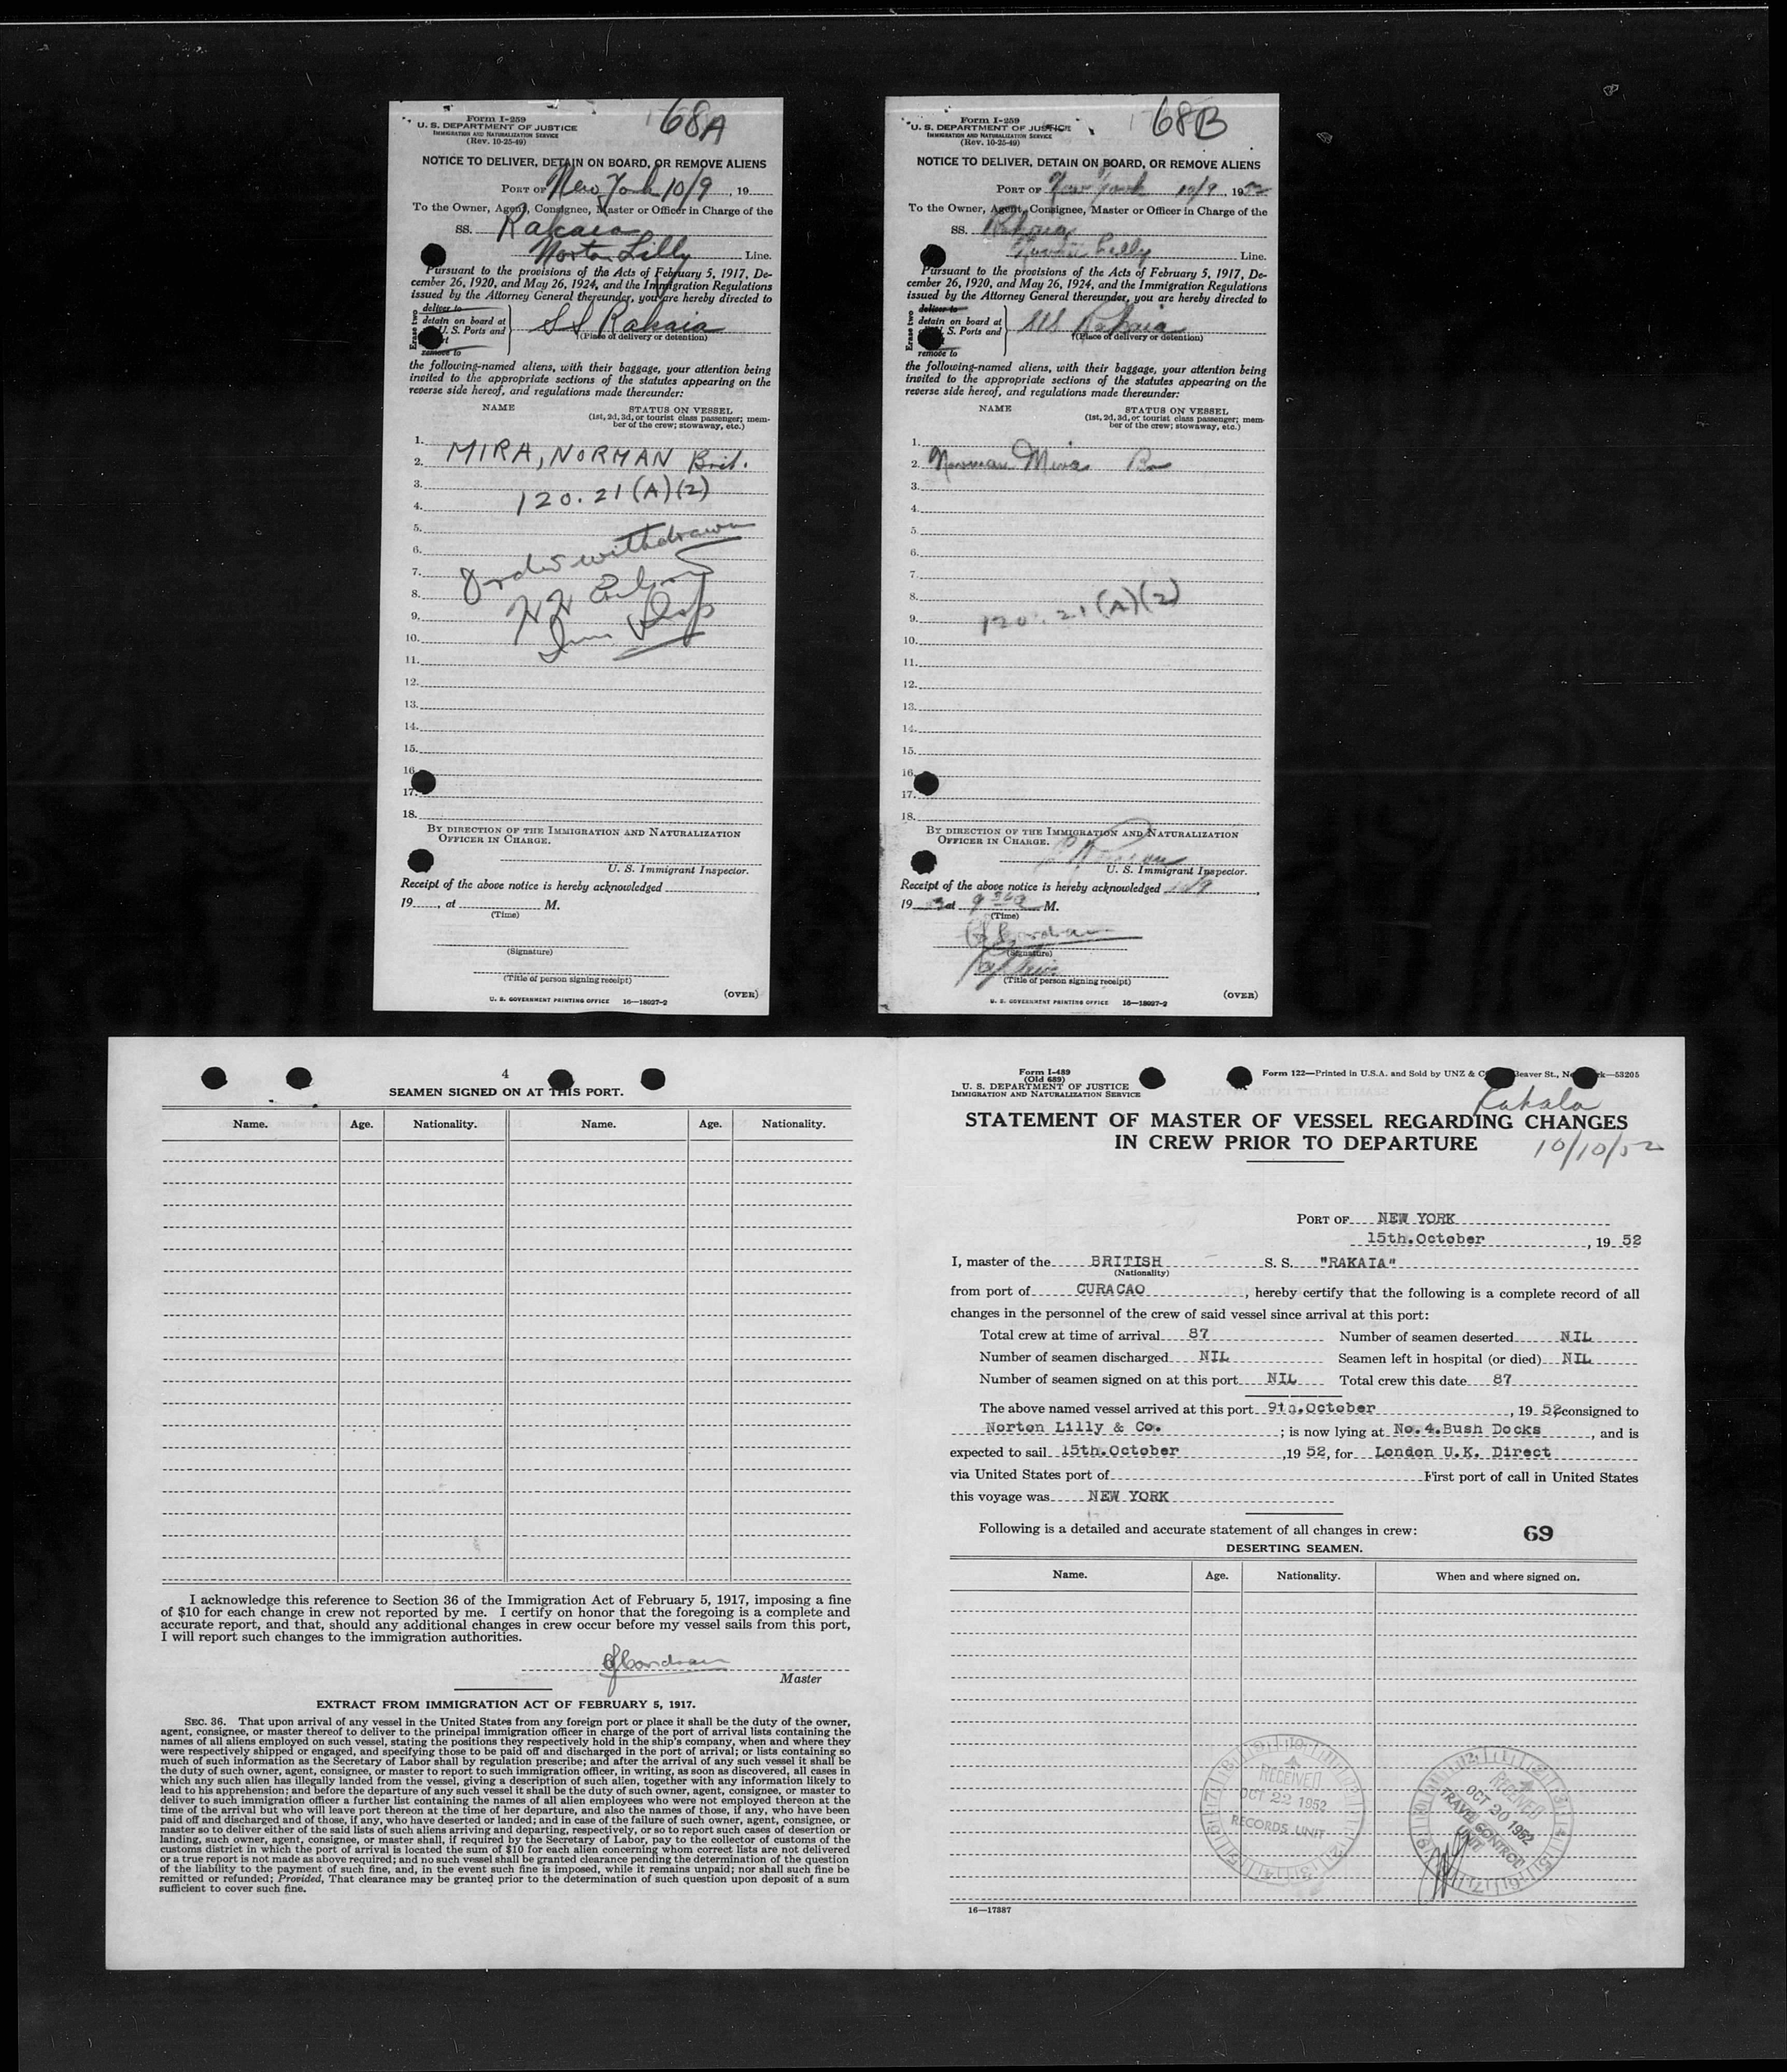 68A
Form I-259
U. S. DEPARTMENT OF JUSTICE
IMMIGRATION AND NATURALIZATION SERVICE
(Rev. 10-25-49)
NOTICE TO DELIVER, DETAIN ON BOARD, OR REMOVE ALIENS
PORT OF New York 10/9, 19
To the Owner, Agent, Consignee, Master or Officer in Charge of the
SS. Rakaia
Norton Lilly Line.
Pursuant to the provisions of the Acts of February 5, 1917, De-
cember 26, 1920, and May 26, 1924, and the Immigration Regulations
issued by the Attorney General thereunder, you are hereby directed to
Erase two
deliver to
detain on board at
U. S. Ports and
remove to
SS Rakaia
(Place of delivery or detention)
the following-named aliens, with their baggage, your attention being
invited to the appropriate sections of the statutes appearing on the
reverse side hereof, and regulations made thereunder:
NAME STATUS ON VESSEL
(1st, 2d, 3d, or tourist class passenger; mem-
ber of the crew; stowaway, etc.)
1.
2. MIRA, NORMAN Brit.
3.
4. 120.21(A)(2)
5.
6. Order withdrawn
7.
8.
9.
10.
11.
12.
13.
14.
15.
16.
17.
18.
BY DIRECTION OF THE IMMIGRATION AND NATURALIZATION
OFFICER IN CHARGE.
U. S. Immigrant Inspector.
Receipt of the above notice is hereby acknowledged
19 , at M.
(Time)
(Signature)
(Title of person signing receipt)
U. S. GOVERNMENT PRINTING OFFICE 16—18027-2
(OVER)
68B
Form I-259
U. S. DEPARTMENT OF JUSTICE
IMMIGRATION AND NATURALIZATION SERVICE
(Rev. 10-25-49)
NOTICE TO DELIVER, DETAIN ON BOARD, OR REMOVE ALIENS
PORT OF New York 10/9 1952
To the Owner, Agent, Consignee, Master or Officer in Charge of the
SS. Rakaia
Norton Lilly Line.
Pursuant to the provisions of the Acts of February 5, 1917, De-
cember 26, 1920, and May 26, 1924, and the Immigration Regulations
issued by the Attorney General thereunder, you are hereby directed to
Erase two
deliver to
detain on board at
U. S. Ports and
remove to
Rakaia
(Place of delivery or detention)
the following-named aliens, with their baggage, your attention being
invited to the appropriate sections of the statutes appearing on the
reverse side hereof, and regulations made thereunder:
NAME STATUS ON VESSEL
(1st, 2d, 3d, or tourist class passenger; mem-
ber of the crew; stowaway, etc.)
1.
2. Norman Mira Br
3.
4.
5.
6.
7.
8.
9. 120.21(A)(2)
10.
11.
12.
13.
14.
15.
16.
17.
18.
BY DIRECTION OF THE IMMIGRATION AND NATURALIZATION
OFFICER IN CHARGE.
U. S. Immigrant Inspector.
Receipt of the above notice is hereby acknowledged 10/9,
19 at M.
(Time)
(Signature)
(Title of person signing receipt)
U. S. GOVERNMENT PRINTING OFFICE 16—18027-2
(OVER)
4
SEAMEN SIGNED ON AT THIS PORT.
Name. Age. Nationality. Name. Age. Nationality.
I acknowledge this reference to Section 36 of the Immigration Act of February 5, 1917, imposing a fine
of $10 for each change in crew not reported by me. I certify on honor that the foregoing is a complete and
accurate report, and that, should any additional changes in crew occur before my vessel sails from this port,
I will report such changes to the immigration authorities.
Master
EXTRACT FROM IMMIGRATION ACT OF FEBRUARY 5, 1917.
SEC. 36. That upon arrival of any vessel in the United States from any foreign port or place it shall be the duty of the owner,
agent, consignee, or master thereof to deliver to the principal immigration officer in charge of the port of arrival lists containing the
names of all aliens employed on such vessel, stating the positions they respectively hold in the ship's company, when and where they
were respectively shipped or engaged, and specifying those to be paid off and discharged in the port of arrival; or lists containing so
much of such information as the Secretary of Labor shall by regulation prescribe; and after the arrival of any such vessel it shall be
the duty of such owner, agent, consignee, or master to report to such immigration officer, in writing, as soon as discovered, all cases in
which any such alien has illegally landed from the vessel, giving a description of such alien, together with any information likely to
lead to his apprehension; and before the departure of any such vessel it shall be the duty of such owner, agent, consignee, or master to
deliver to such immigration officer a further list containing the names of all alien employees who were not employed thereon at the
time of the arrival but who will leave port thereon at the time of her departure, and also the names of those, if any, who have been
paid off and discharged and of those, if any, who have deserted or landed; and in case of the failure of such owner, agent, consignee, or
master so to deliver either of the said lists of such aliens arriving and departing, respectively, or so to report such cases of desertion or
landing, such owner, agent, consignee, or master shall, if required by the Secretary of Labor, pay to the collector of customs of the
customs district in which the port of arrival is located the sum of $10 for each alien concerning whom correct lists are not delivered
or a true report is not made as above required; and no such vessel shall be granted clearance pending the determination of the question
of the liability to the payment of such fine, and, in the event such fine is imposed, while it remains unpaid; nor shall such fine be
remitted or refunded; Provided, That clearance may be granted prior to the determination of such question upon deposit of a sum
sufficient to cover such fine.
Form I-489
(Old 689)
U. S. DEPARTMENT OF JUSTICE
IMMIGRATION AND NATURALIZATION SERVICE
Form 122—Printed in U.S.A. and Sold by UNZ & C Beaver St., Ne rk—53205
Rakala
STATEMENT OF MASTER OF VESSEL REGARDING CHANGES
IN CREW PRIOR TO DEPARTURE
10/10/52
PORT OF NEW YORK
15th.October, 19 52
I, master of the BRITISH S. S. "RAKAIA"
(Nationality)
from port of CURACAO, hereby certify that the following is a complete record of all
changes in the personnel of the crew of said vessel since arrival at this port:
Total crew at time of arrival 87 Number of seamen deserted NIL
Number of seamen discharged NIL Seamen left in hospital (or died) NIL
Number of seamen signed on at this port NIL Total crew this date 87
The above named vessel arrived at this port 9th.October, 19 52 consigned to
Norton Lilly & Co.; is now lying at No.4.Bush Docks, and is
expected to sail 15th.October, 19 52, for London U.K. Direct
via United States port of First port of call in United States
this voyage was NEW YORK
Following is a detailed and accurate statement of all changes in crew: 69
DESERTING SEAMEN.
Name. Age. Nationality. When and where signed on.
RECEIVED
OCT 22 1952
RECORDS UNIT
RECEIVED
OCT 20 1952
TRAVEL CONTROL
UNIT
16—17887